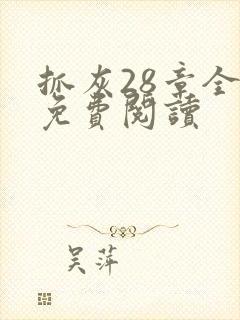 抓灰28章全
免費閱讀
吴萍